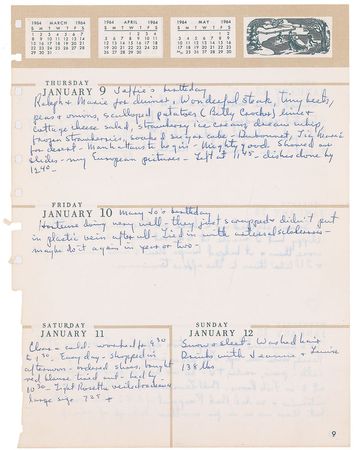 1964 MARCH 1964
S M T W T F S
1 2 3 4 5 6 7
8 9 10 11 12 13 14
15 16 17 18 19 20 21
22 23 24 25 26 27 28
29 30 31
1964 APRIL 1964
S M T W T F S
1 2 3 4
5 6 7 8 9 10 11
12 13 14 15 16 17 18
19 20 21 22 23 24 25
26 27 28 29 30
1964 MAY 1964
S M T W T F S
THURSDAY
JANUARY 9 Jaffie's birthday
Ralph & Marie for dinner. Wonderful steak, tiny beets,
peas & onions, scalloped potatoes (Betty Crocker) lime &
cottage cheese salad, strawberry ice cream, dream whip,
frozen strawberries, cake - Dubonnet, Tia Maria
for desert - Manhattans to begin - Mighty good. Showed our
slides - my European pictures - Left at 11:45 - dishes done by
12:40 -
FRIDAY
JANUARY 10 Mary Jo's birthday
Hortense doing very well - they just scrapped & didn't put
in plastic vein after all - Tied in with natural
maybe do it again in year or two -
SATURDAY
JANUARY 11
Clear - cold - worked 8:30
to 1:30. Every day - shopped in
afternoon - ordered shoes, bought
red blouse tired out - bed by
10:30 -
large size 725
SUNDAY
JANUARY 12
Snow & sleet - Washed hair
Drinks with Jeanne & Louise
138 lbs
9